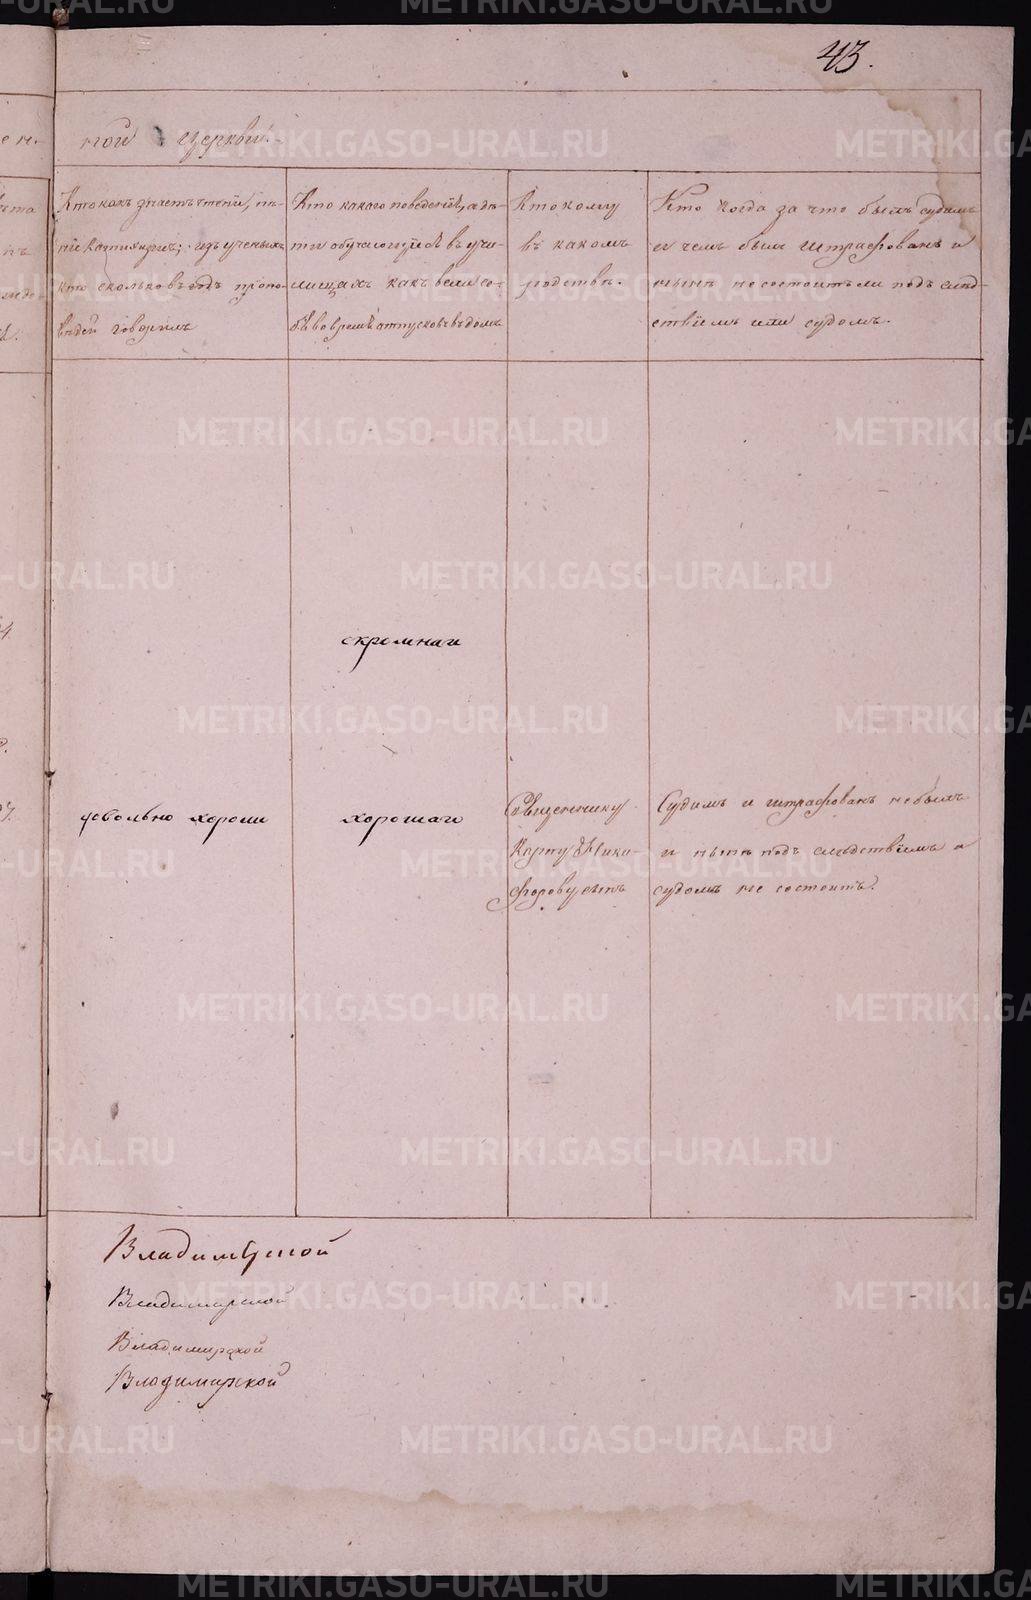 43.
ной церкви.
Кто какъ знаетъ чтенiе, пѣ-
нiе катихизис; изъ ученыхъ
кто сколько въ годъ пропо-
вѣдей говорилъ
Кто какаго поведенiя, а дѣ-
ти обучающiися въ учи-
лищахъ какъ вели се-
бя во время отпусковъ въ домъ
Кто кому
въ какомъ
родствѣ.
Кто когда за что былъ судимъ
и чемъ былъ штрафованъ и
нынѣ не состоитъ ли подъ слѣд-
ствiемъ или судомъ.
скромнаго
довольно хорошо
хорошаго
Священнику
Карпу Ники-
форову сынъ
Судимъ и штрафованъ небылъ
и нынѣ подъ слѣдствiемъ и
судомъ не состоитъ.
Владимiрской
Владимирской
Владимирской
Владимирской